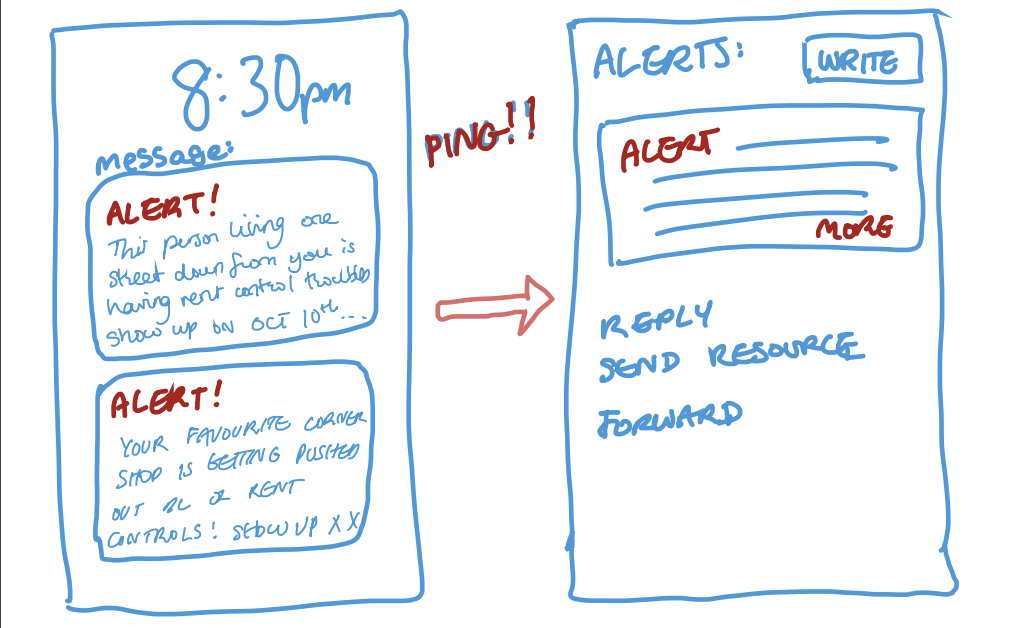 8:30pm
message:
ALERT!
This person living one
street down from you is
having rent control troubles
show up on OCT 10th...
ALERT!
YOUR FAVOURITE CORNER
SHOP IS GETTING PUSHED
OUT BC OF RENT
CONTROLS! SHOW UP XX
PING!!
ALERTS:
WRITE
ALERT
MORE
REPLY
SEND RESOURCE
FORWARD